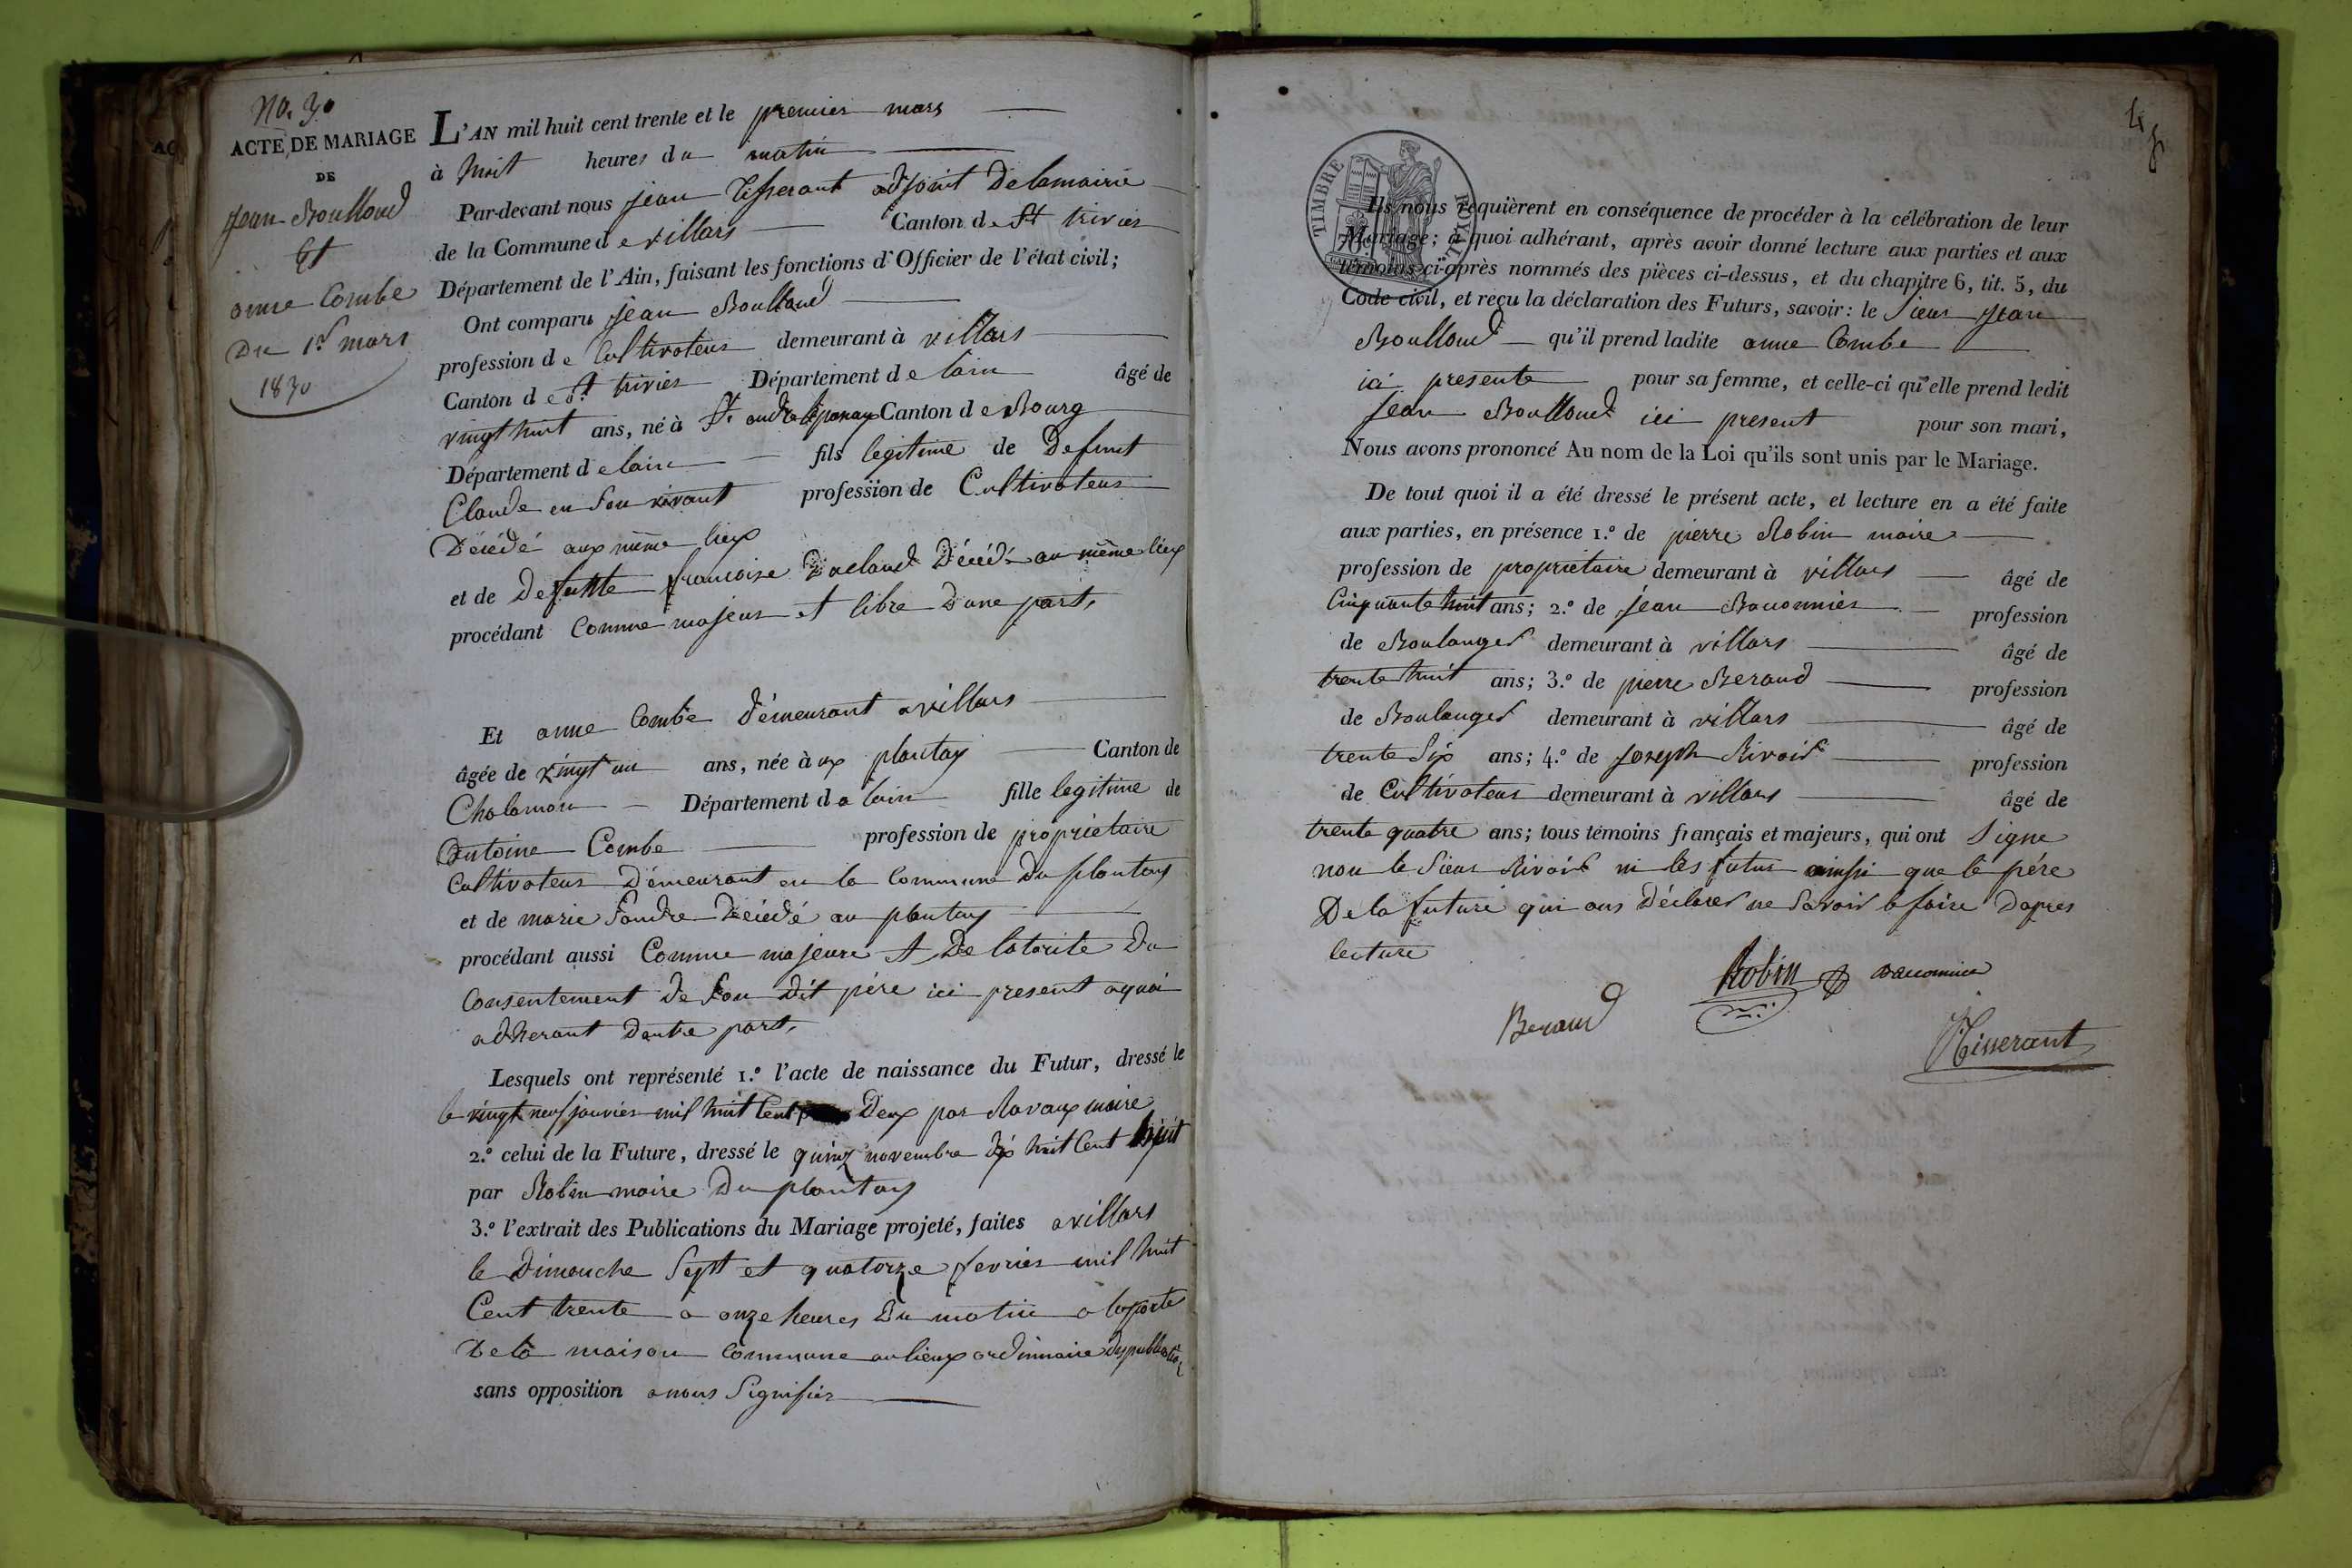 No. 30
ACTE DE MARIAGE
DE
Jean Boulloud
Et
anne Combe
Du 1er mars
1830
L'AN mil huit cent trente et le premier mars
à huit heures du matin
Par-devant nous jean tisserant adjoint de la mairie
de la Commune de villars Canton de St trivier
Département de l'Ain, faisant les fonctions d'Officier de l'état civil;
Ont comparu jean Boulloud
profession de Cultivateur demeurant à villars
Canton de St. trivier Département de lain âgé de
vingt huit ans, né à St. andre Canton de Bourg
Département de lain fils legitime de Defunt
Claude en Son vivant profession de Cultivateur
Décédé aux même lieux
et de Defunte francoise Décédé au même lieux
procédant Comme majeur et libre Dune part,
Et anne Combe Démeurant a villars
âgée de vingt un ans, née à ux plantay Canton de
Chalamon Département da lain fille legitime de
Antoine Combe profession de propriétaire
Cultivateur Démeurant en la Commune Du plantay
et de marie Décédé au plantay
procédant aussi Comme majeure et De latorite Du
Consentement De Son Dit père ici present aquoi
adherant Dautre part,
Lesquels ont représenté 1.º l'acte de naissance du Futur, dressé le
le vingt neuf janvier mil huit Cent Deux par Ravaux maire
2.º celui de la Future, dressé le quinz novembre dix huit Cent huit
par Robin maire Du plantay
3.º l'extrait des Publications du Mariage projeté, faites a villars
le Dimanche Sept et quatorze fevrier mil huit
Cent trente a onze heures Du matin a la porte
De la maison Commune au lieux ordinnaire des publications
sans opposition a nous Signifier
48
TIMBRE ROYAL
Ils nous requièrent en conséquence de procéder à la célébration de leur
Mariage; à quoi adhérant, après avoir donné lecture aux parties et aux
témoins ci-après nommés des pièces ci-dessus, et du chapitre 6, tit. 5, du
Code civil, et reçu la déclaration des Futurs, savoir: le Sieur Jean
Boulloud qu'il prend ladite anne Combe
ici presente pour sa femme, et celle-ci qu'elle prend ledit
Jean Boulloud ici present pour son mari,
Nous avons prononcé Au nom de la Loi qu'ils sont unis par le Mariage.
De tout quoi il a été dressé le présent acte, et lecture en a été faite
aux parties, en présence 1.º de pierre Robin maire
profession de propriétaire demeurant à villars âgé de
Cinquante huit ans; 2.º de jean Baconnier profession
de Boulanger demeurant à villars âgé de
trente huit ans; 3.º de pierre Beraud profession
de Boulanger demeurant à villars âgé de
trente Six ans; 4.º de joseph Rivoir profession
de Cultivateur demeurant à villars âgé de
trente quatre ans; tous témoins français et majeurs, qui ont Signe
non le Sieur Rivoir ni les futur ainsi que le pére
De la future qui ons Déclarer ne Savoir le faire Dapres
lecture
Robin Baconnier
Beraud
Tisserant